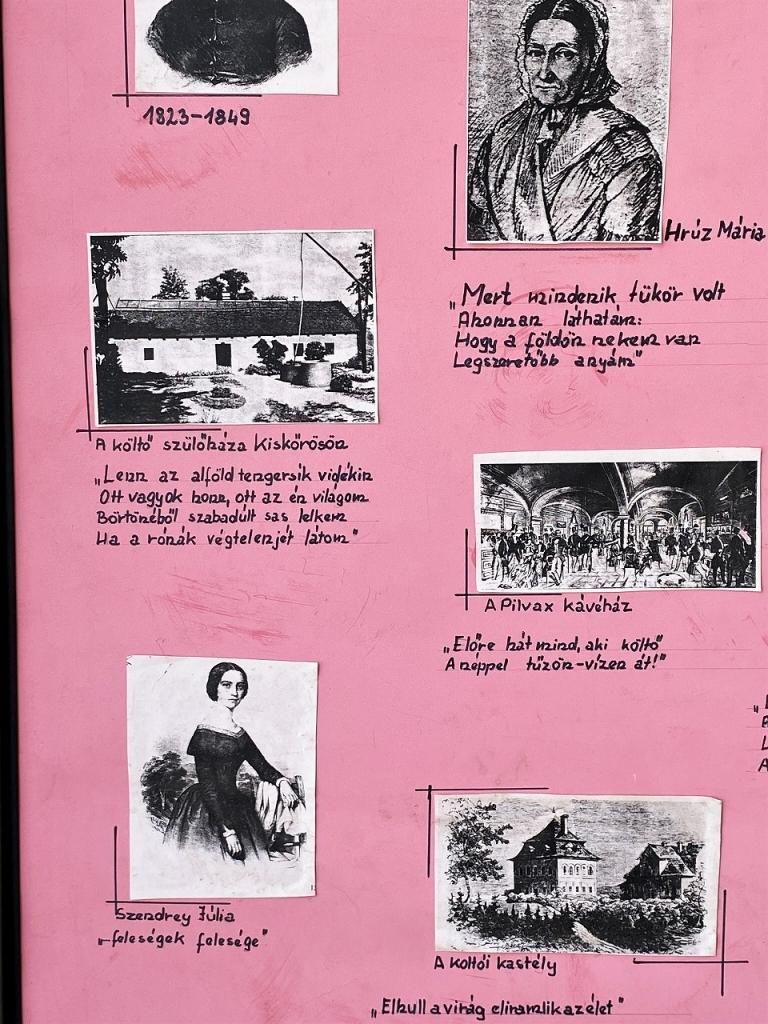 1823-1849
Hrúz Mária
„Mert mindenik tükör volt
Ahonnan láthatám:
Hogy a földön nekem van
Legszeretőbb anyám"
A költő szülőháza Kiskőrösön
„Lenn az alföld tengersík vidékin
Ott vagyok honn, ott az én világom
Börtönéből szabadúlt sas lelkem
Ha a rónák végtelenjét látom"
A Pilvax kávéház
„Előre hát mind, aki költő
A néppel tűzön-vízen át!"
Szendrey Júlia
„feleségek felesége"
A koltói kastély
„Elhull a virág eliramlik az élet"